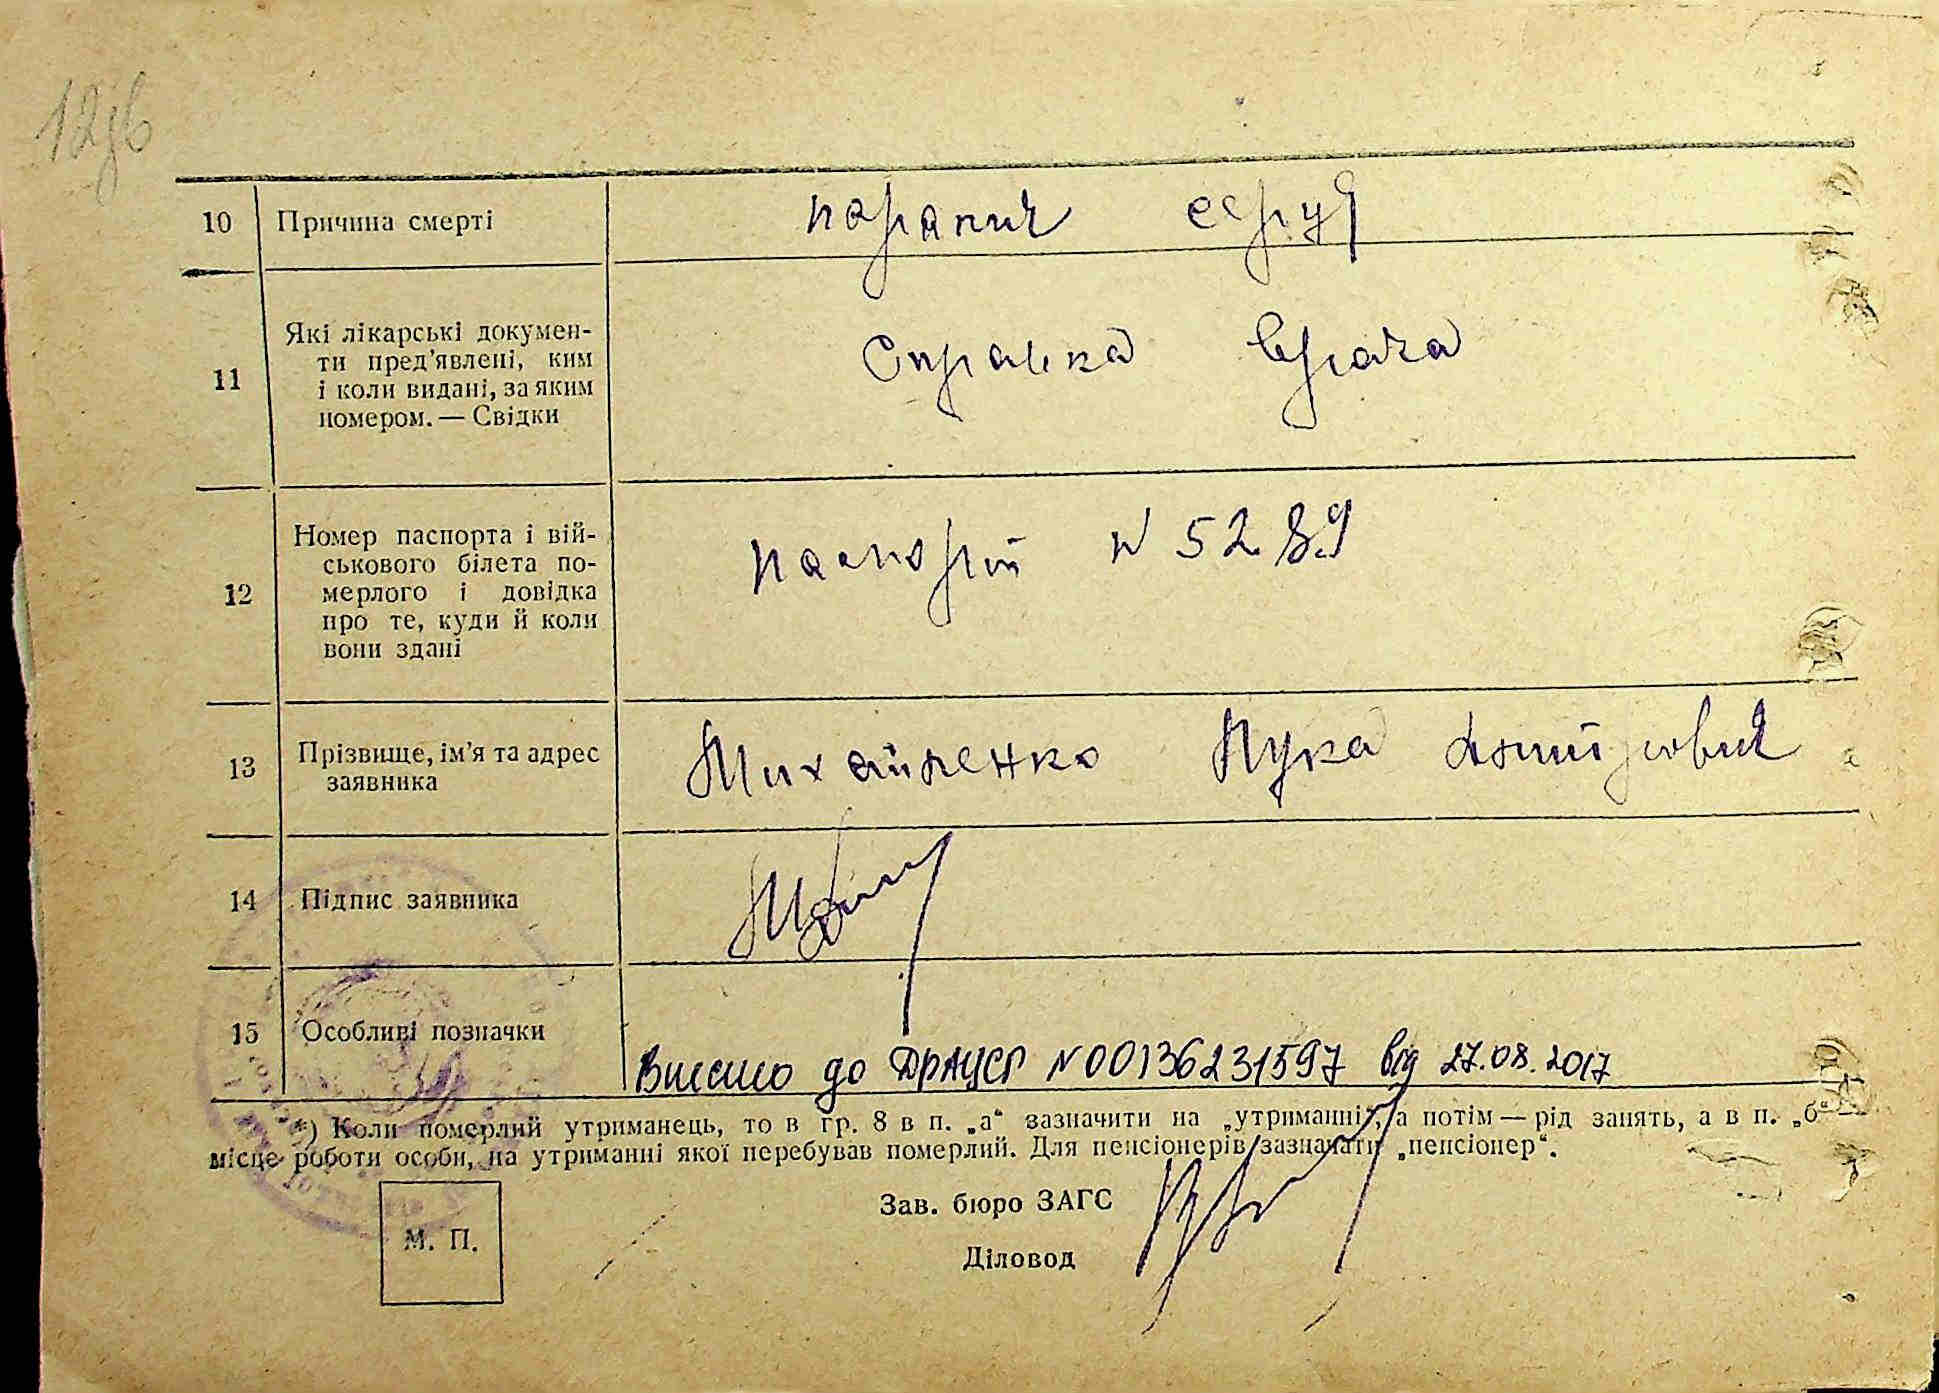 12зв
10 Причина смерті паралич серця
11 Які лікарські докумен-
ти пред'явлені, ким
і коли видані, за яким
номером. — Свідки
Справка врача
12 Номер паспорта і вій-
ськового білета по-
мерлого і довідка
про те, куди й коли
вони здані
паспорт N 5289
13 Прізвище, ім'я та адрес
заявника
Михайленко Лука Дмитрович
14 Підпис заявника
15 Особливі позначки
Внесено до ДРАЦСГ N 00136231597 від 27.08.2017
*) Коли померлий утриманець, то в гр. 8 в п. „а“ зазначити на „утриманні“, а потім — рід занять, а в п. „б“ —
місце роботи особи, на утриманні якої перебував померлий. Для пенсіонерів зазначати „пенсіонер“.
Зав. бюро ЗАГС
М. П.
Діловод